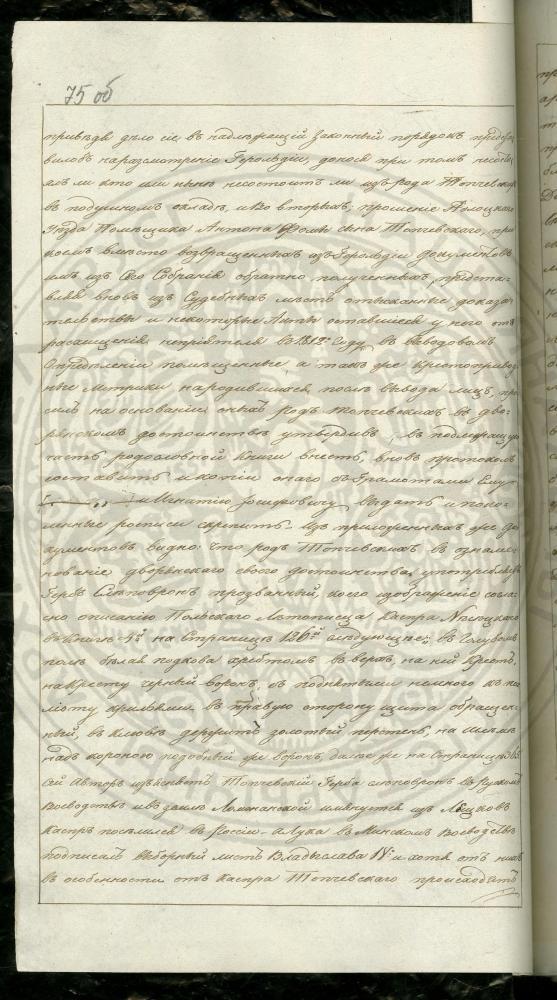 75 об
приведя дело сіе въ надлежащій Законный порядокъ
виловъ на разсмотреніе Герольдіи, донося при томъ
ли кто или ныне несостоитъ ли изъ рода Топчевских
въ подушномъ окладѣ, и во вторыхъ: прошеніе Полоцкаго
Уезда Помещика Антона Фомы сына Топчевскаго, при
коемъ вместо возвращенныхъ изъ Герольдіи Документовъ
имъ изъ Сего Собранія обратно полученныхъ, предста-
вляя вновь изъ Судебныхъ местъ отысканные доказа
тельства и некоторые Акты оставшіеся у него отъ
расхищенія непріятеля въ 1812м Году, въ выводовомъ
Определеніи помещенные, а также крестоприво
ные Метрики народившихся после вывода лицъ, про
ситъ на основаніи оныхъ Родъ Топчевскихъ въ дво-
рянскомъ достоинстве утвердивъ, въ подлежащую
часть родословной Книги внесть, вновь протоколъ
составить и копіи онаго съ Грамотами Ему
и Игнатію Іосифовичу выдать и поко-
ленные росписи скрепить. Изъ приложенныхъ же до
кументовъ видно: что родъ Топчевскихъ въ ознаме-
нованіе дворянскаго своего достоинства, употребляетъ
Гербъ Слеповронъ прозванный, коего изображеніе согла-
сно описанію Польскаго Летописца Каспра Несецкаго
въ Книге 4й на Странице 126й следующее: въ Голубомъ
поле белая подкова хребтомъ въ верхъ, на ней Крестъ,
на Кресту черный воронъ, съ поднятыми немного къ по
лёту крыльями въ правую сторону щита обращен-
ный, въ клюве держитъ золотый перстень, на шлеме
надъ короною подобный же воронъ, далее же на Странице
сей Авторъ изъясняетъ Топчевскій Герба слеповронъ въ Рускомъ
Воеводстве и въ земле Ломжанской имянуется изъ
Каспръ поселился въ Россіи а Лука въ Минскомъ Воеводстве
подписалъ выборный листъ Владыслава IV и хотя отъ нихъ
въ особенности отъ Каспра Топчевскаго происходятъ